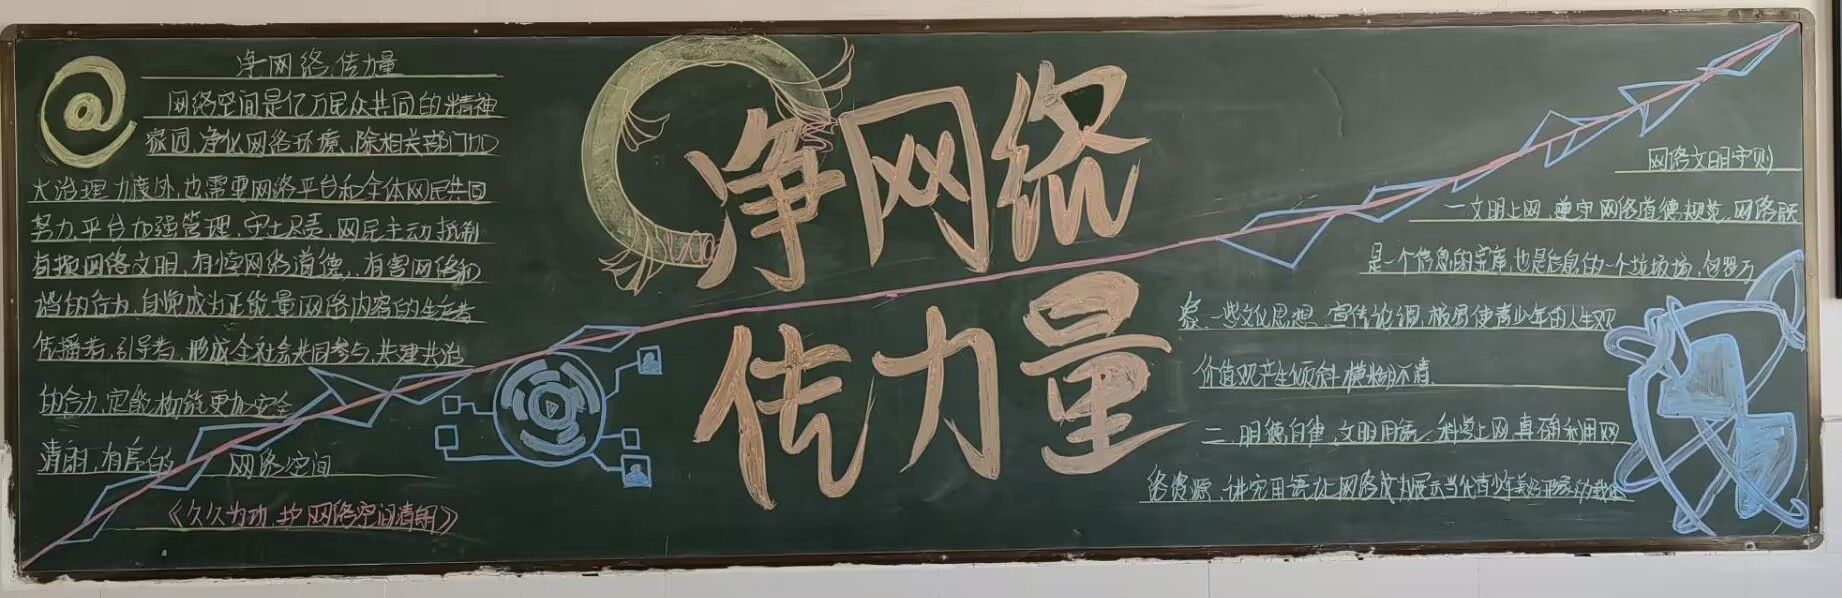 @
净网络,传力量
网络空间是亿万民众共同的精神
家园,净化网络环境,除相关部门加
大治理力度外,也需要网络平台和全体网民共同
努力,平台加强管理,守土尽责,网民主动抵制
有损网络文明,有悖网络道德,有害网络和
谐的行为,自觉成为正能量网络内容的生产者
传播者,引导者,形成全社会共同参与,共建共治
的合力,定能构筑更加安全
清朗,有序的 网络空间
《久久为功,护网络空间清朗》
净网络
传力量
网络文明守则
一.文明上网,遵守网络道德规范,网络既
是一个信息的宝库,也是信息的一个垃圾场,包罗万
象,一些文化思想,宣传论调,极易使青少年的人生观
价值观产生倾斜,模糊不清.
二.明德自律,文明用语,科学上网,真确利用网
络资源,讲究用语,让网络成为展示当代青少年美好形象的载体